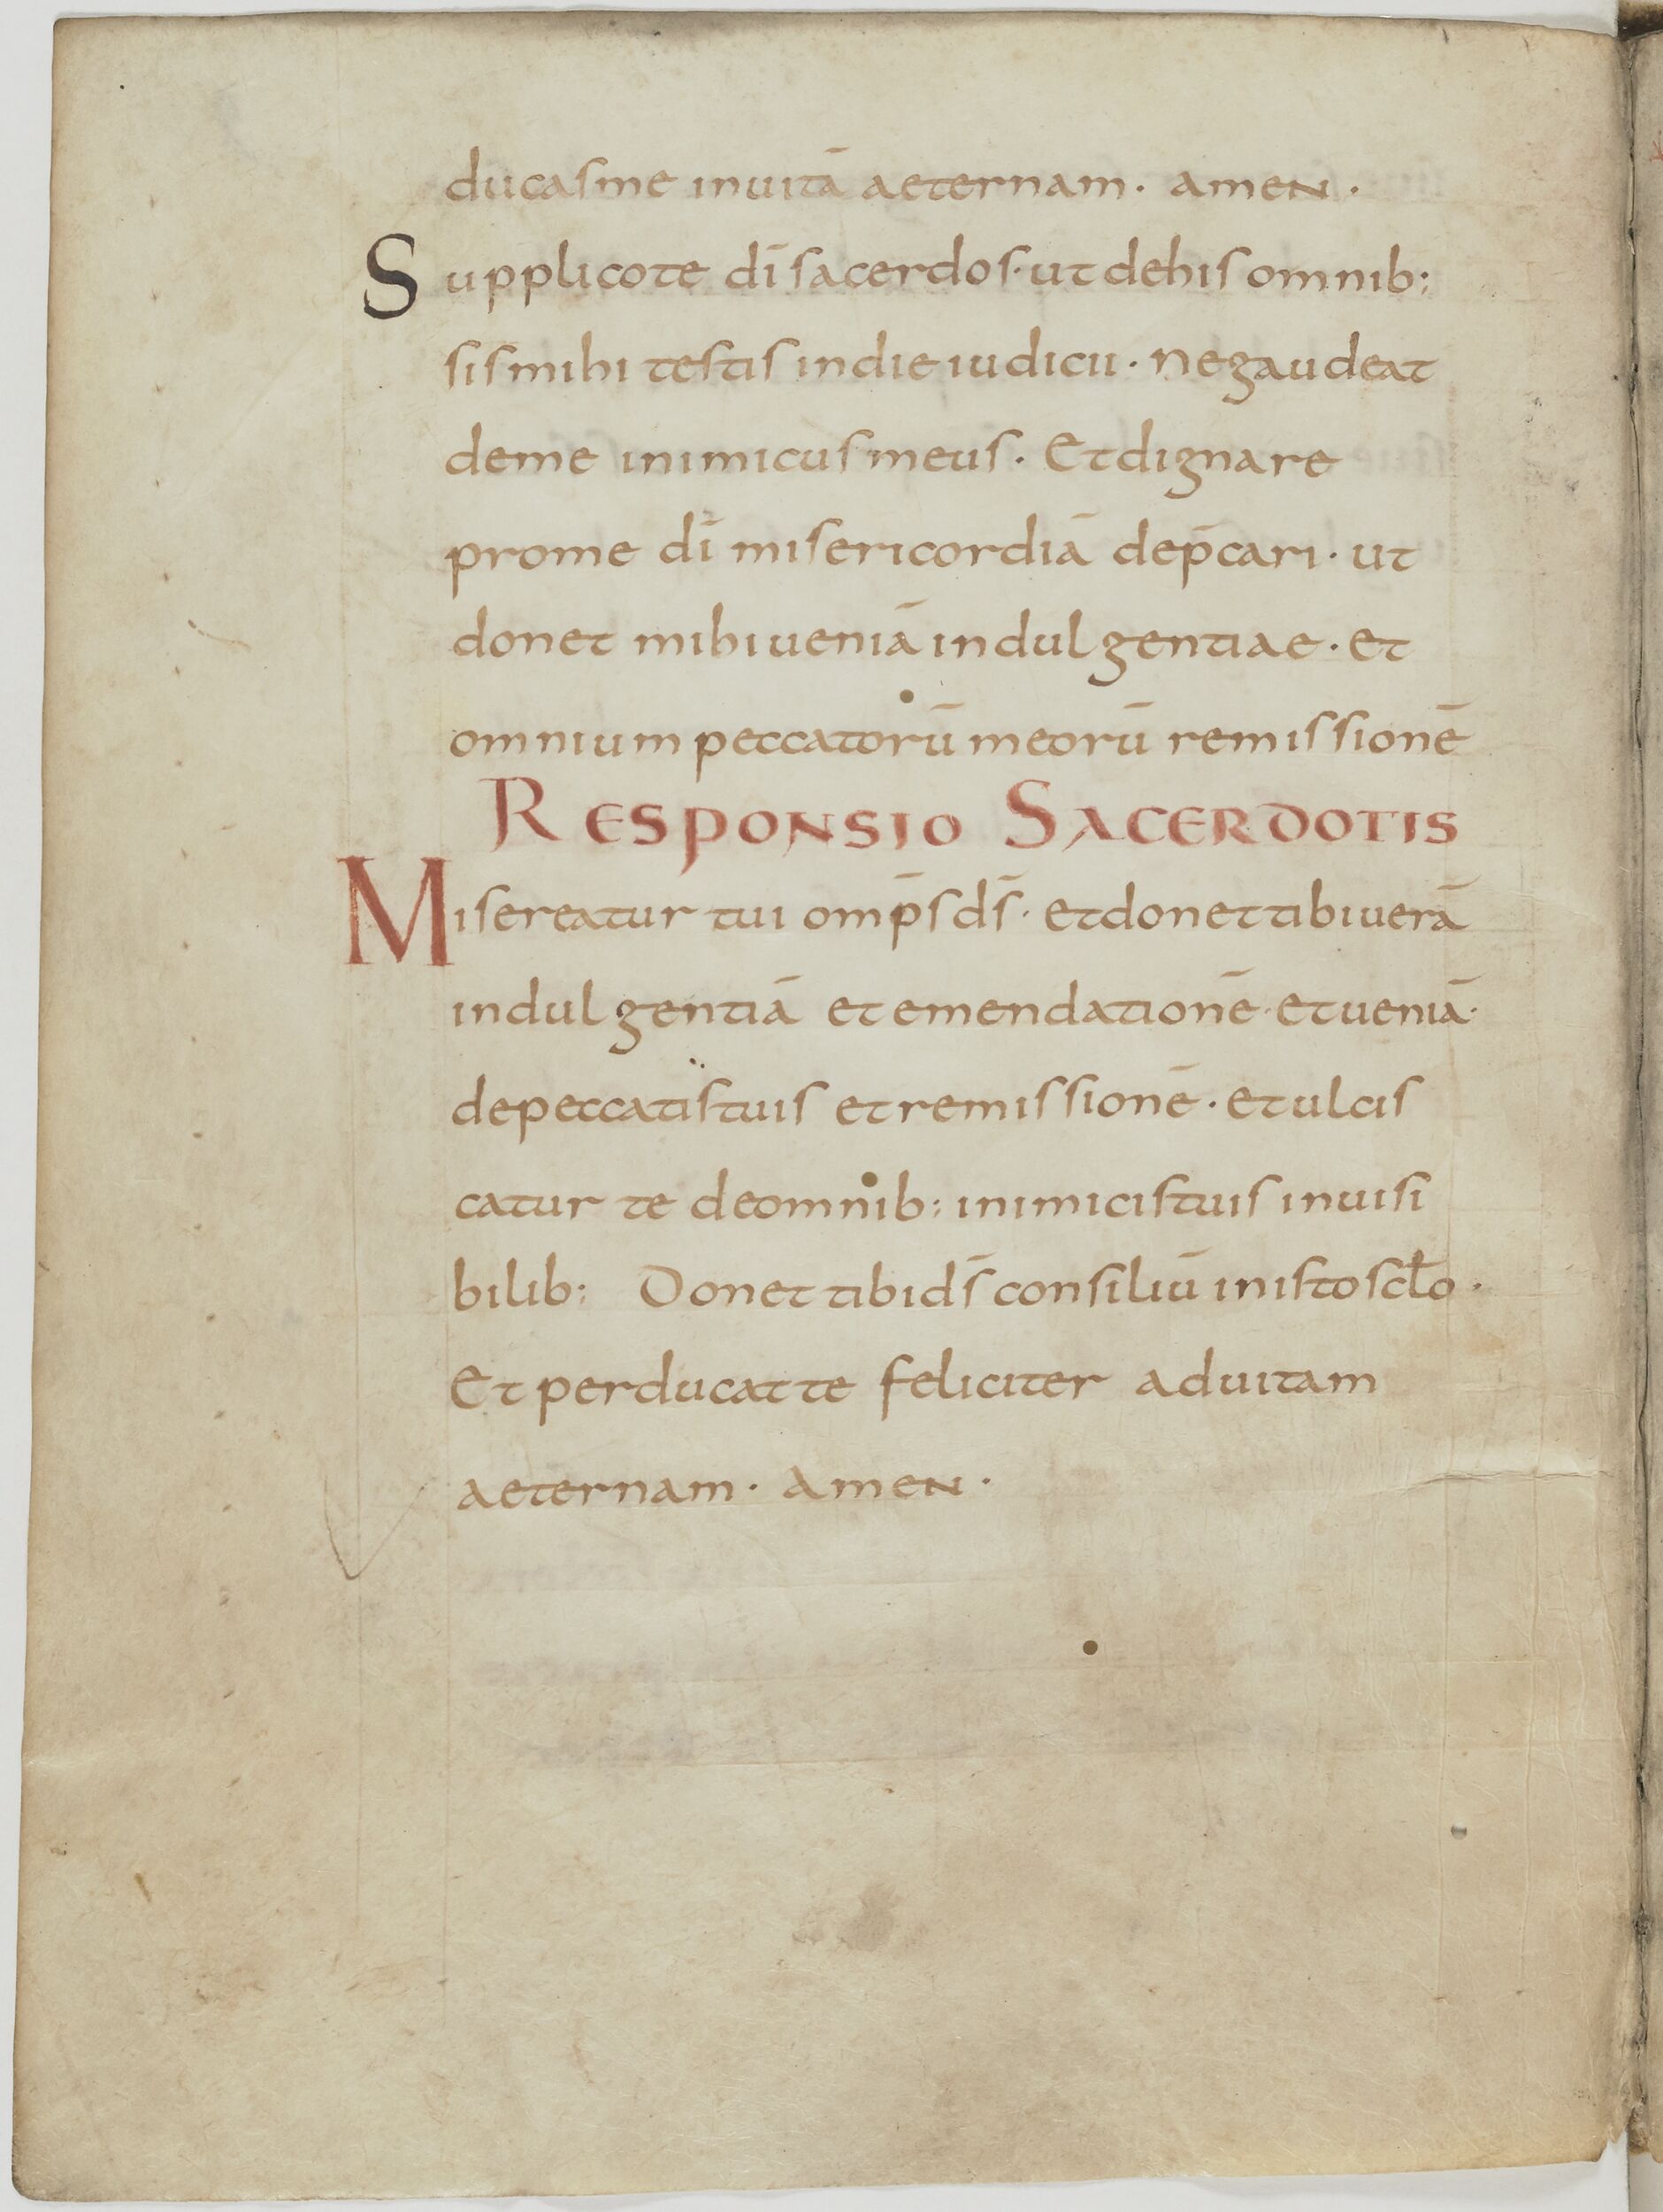 ducasme inuitā aeternam. amen.
Supplicote dī sacerdos. ut dehis omnib;
sis mihi testis indie iudicii. Negaudeat
deme inimicus meus. Et dignare
prome dī misericordiā dep̄cari. ut
donet mihi ueniā indulgentiae. et
omnium peccatorū meorū remissionē
RESPONSIO SACERDOTIS
Misereatur tui omp̄s ds̄. et donet tibi uerā
indulgentiā et emendationē. et ueniā.
depeccatis tuis et remissionē. et ulcis
catur te deomnib; inimicis tuis inuisi
bilib; Donet tibi ds̄ consiliū inisto scło.
Et perducat te feliciter aduitam
aeternam. Amen.